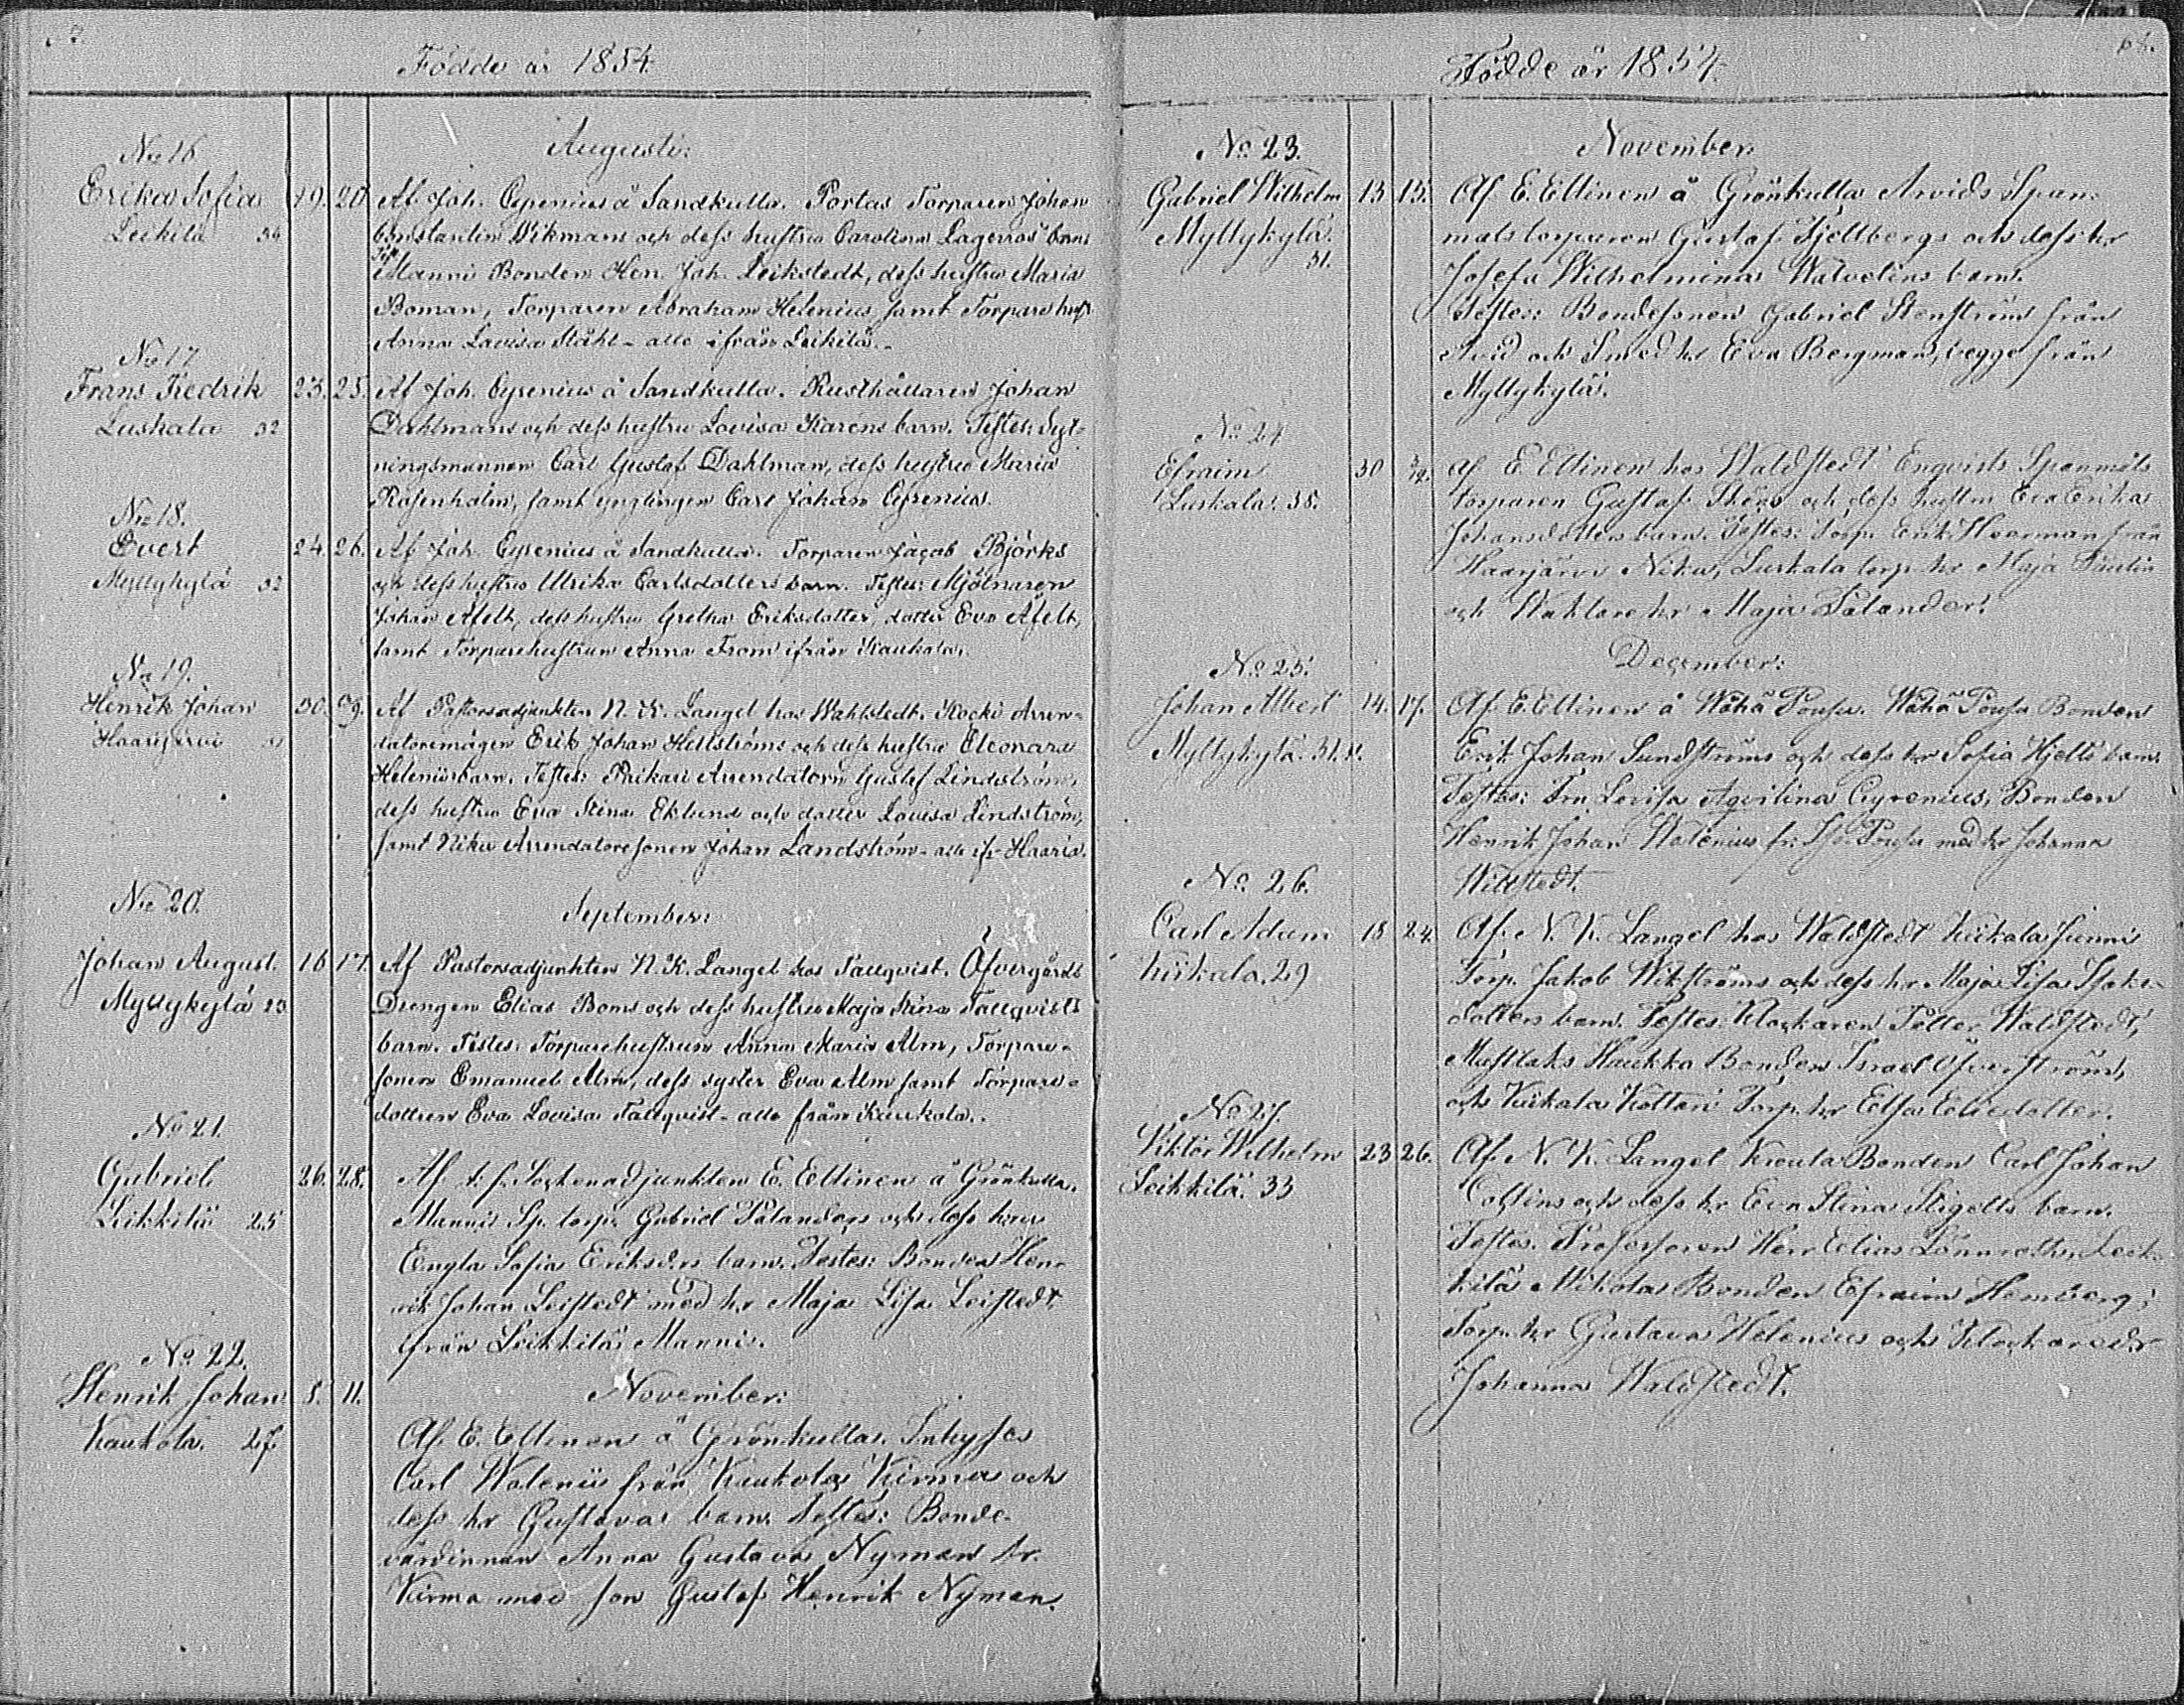 Födde år 1854.
No 16
Augusti:
Erika Sofia 19. 20 Af Joh. Cyrenius å Sandkulla. Portas Torparen Johan
Leikilä 36 Constantin Wikmans och dess hustru Carolina Lagerroos barn.
Test. Manni Bonden Hen. Joh. Leikstedt, dess hustru Maria
Boman, Torparen Abraham Helenius samt Torpare hust.
Anna Lovisa Ståhl - alle ifrån Leikilä.
No 17
Frans Fredrik 23. 25. Af Joh. Cyrenius å Sandkulla. Rusthållaren Johan
Luskala 32 Dahlmans och dess hustru Lovisa Karens barn. Testes: Syt-
ningsmannen Carl Gustaf Dahlman, dess hustru Maria
Rosenholm, samt ynglingen Carl Johan Cyrenius.
No 18.
Evert 24. 26. Af Joh. Cyrenius å Sandkulla. Torparen Jacob Björks
Myllykylä 32 och dess hustru Ulrika Carlsdotters barn. Testes: Mjölnaren
Johan Åfelt, dess hustru Gretha Eriksdotter, dotter Eva Åfelt,
samt Torparehustrun Anna From ifrån Kaukola.
No 19.
Henrik Johan 30. Af Pastorsadjunkten N. K. Langel hos Wahlstedt. Kocki Arren-
Haarijärvi datoremågen Erik Johan Hellströms och dess hustru Eleonara
Helenii barn. Testes: Raikas Arrendatorn Gustaf Lindström,
dess hustru Eva Stina Eklund och dotter Lovisa Lindström,
samt Niku Arrendatoresonen Johan Landström - alle ifr. Haaris.
No 20.
September:
Johan August 16 17. Af Pastorsadjunkten N. K. Langel hos Tallqvist. Öfvergårds
Myllykylä 23 Drengen Elias Boms och dess hustru Maja Stina Tallqvists
barn. Testes: Torparehustrun Anna Maria Alm, Torpare-
sonen Emanuel Alm, dess syster Eva Alm samt Torpare-
dottren Eva Lovisa Tallqvist - alle från Kaukola.
No 21.
Gabriel 26. 28. Af t. f. Sockenadjunkten E. Ellinen å Grönkulla.
Leikkilä 25 Mannis Sp. torp. Gabriel Palanders och dess hru
Engla Sofia Eriksdrs barn. Testes: Bonden Hen-
rik Johan Leistedt med hr Maja Lisa Leistedt
från Leikkilä Mannis.
No 22.
November:
Henrik Johan 8. 11. Af E. Ellinen å Grönkulla. Inhyses
Kaukola. 27. Carl Walenii från Kaukola Kirma och
dess hr Gustavas barn. Testes: Bonde-
värdinnan Anna Gustava Nyman fr.
Kirma med son Gustaf Henrik Nyman.
Födde år 1854.
No 23.
November:
Gabriel Wilhelm 13 15. Af E. Ellinen å Grönkulla Arvids Span-
Myllykylä. 31. malstorparen Gustaf Fjellbergs och dess hr
Josefa Wilhelmina Walvelins barn.
Testes: Bondesonen Gabriel Stenström från
Arvid och Smed hr Eva Bergman, begge från
Myllykylä.
No 24
Efraim 30 Af E Ellinen hos Waldstedt Enqvists Spanmåls
Luskala. 38. torparen Gustaf Sköns och dess hustru Eva Erika
Johansdotters barn. Testes: Torp. Erik Haarman från
Haarjärvi Niku, Luskala torp. hr Maja
och Waktare hr Maja Palander.
No 25.
December:
Johan Albert 14. 17. Af E. Ellinen å Wähä Pousu. Wähä Pousu Bonden
Myllykylä. 31. Erik Johan Sundströms och dess hr Sofia Hjelts barn.
Testes: Frn Lovisa Aqvilina Cyrenius, Bonden
Henrik Johan Walenius fr. Iso Pousu med hr Johanna
Widstedt.
No 26.
Carl Adam 18 24. Af N. K. Langel hos Waldstedt Kiikala Junni
Kiikala. 29 Torp. Jakob Wikströms och dess hr Maja Lisa Isaks-
dotters barn. Testes: Klockaren Petter Waldstedt,
Haukka Bonden Israel Öfverström,
och Kiikala Kottari Torp. hr Elsa Eliedotter.
No 27.
Viktor Wilhelm 23 26. Af N. K. Langel Knuuta Bonden Carl Johan
Leikkilä. 33 Collins och dess hr Eva Stina Stigells barn.
Testes. Professoren Herr Elias Lönnroth, Leik-
kilä Mikola Bonden Efraim Hemberg,
Torp. hr Gustava Helenius och Klockaredr
Johanna Waldstedt.